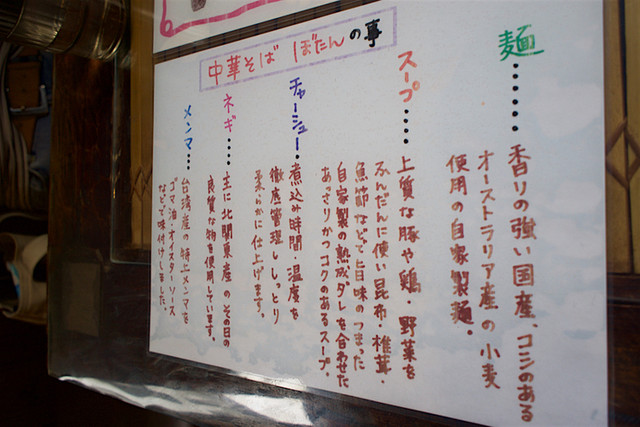 中華そば ぼたんの事
麺……
香りの強い国産、コシのある
オーストラリア産の小麦
使用の自家製麺。
スープ……
上質な豚や鶏・野菜を
ふんだんに使い昆布・椎茸・
魚節などで旨味のつまった
自家製の熟成ダレを合わせた
あっさりかつコクのあるスープ。
チャーシュー…
煮込み時間・温度を
徹底管理ししっとり
柔らかに仕上げます。
ネギ……
主に北関東産のその日の
良質な物を使用しています。
メンマ…
台湾産の特上メンマを
ゴマ油・オイスターソース
などで味付けしました。